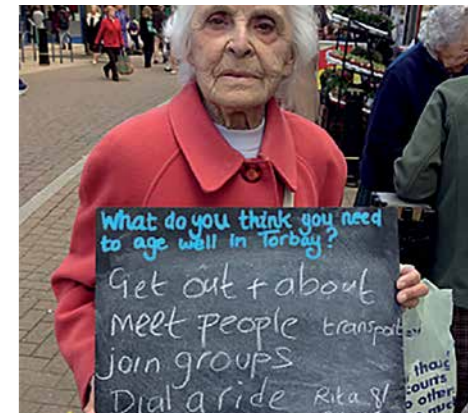 What do you think you need
to age well in Torbay?
Get out + about
meet people transport
join groups
Dial a ride Rita 81
thoug
counts
o other